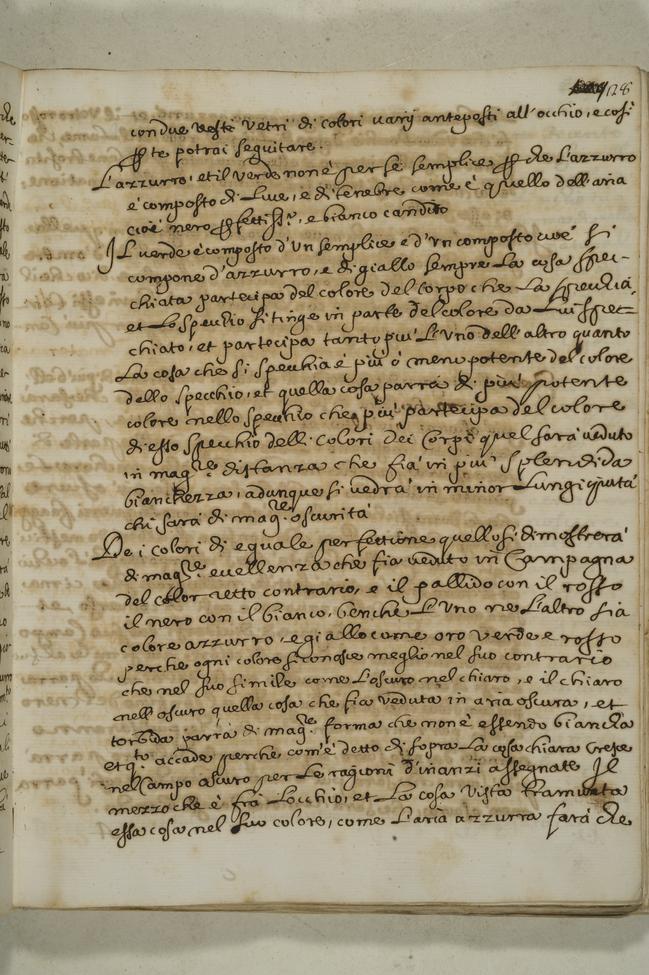 128
con due uesti vetri di colori varij anteposti all'occhio, e così
te potrai seguitare.
L'azzurro, et il verde non è per se semplice che l'azzurro
è composto di luce, e di tenebre come è quello dell'aria
cioè nero , e bianco candido
Il verde è composto d'un semplice e d'un composto cioè si
compone d'azzurro, e di giallo sempre la cosa spec-
chiata partecipa del colore del corpo che la specchia,
et lo specchio si tinge in parte del colore da lui spec-
chiato, et partecipa tanto più l'uno dell'altro quanto
la cosa che si specchia è più ò meno potente del colore
dello specchio, et quella cosa parrà di più potente
colore nello specchio che più partecipa del colore
di esso specchio delli colori dei corpi quel sarà veduto
in mag.re distanza che fia in più splendida
bianchezza, adunque si vedrà in minor
chi sarà di mag.re oscurità
De i colori di equale perfettione quello si dimostrerà
di mag.re eccellenza che fia veduto in campagna
del color retto contrario, e il pallido con il rosso
il nero con il bianco, benche l'uno ne l'altro sia
colore azzurro, e giallo come oro verde e rosso
perche ogni colore si conosce meglio nel suo contrario
che nel suo simile come l'oscuro nel chiaro, e il chiaro
nell'oscuro quella cosa che fia veduta in aria oscura, et
torbida parrà di mag.re forma che non è essendo bianca
et q.to accade perche com'è detto di sopra la cosa chiara cresce
nel campo oscuro per le ragioni d'inanzi assegnate Il
mezzo che è fra l'occhio, et la cosa vista tramuta
essa cosa nel suo colore, come l'aria azzurra farà che